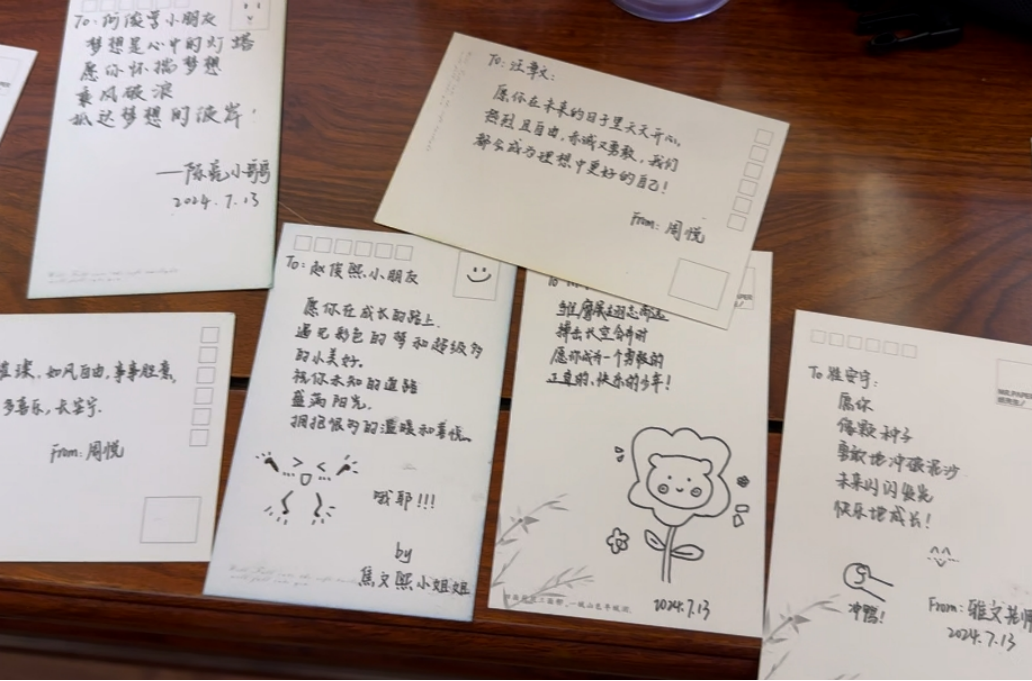 To:何俊鋊小朋友
梦想是心中的灯塔
愿你怀揣梦想
乘风破浪
抵达梦想的彼岸!
——陈亮小哥哥
2024.7.13
To:汪章文:
愿你在未来的日子里天天开心,
热烈且自由,赤诚又勇敢,我们
都会成为理想中更好的自己!
From:周悦
如风自由,事事胜意,
多喜乐,长安宁.
From:周悦
To:赵俊熙小朋友
愿你在成长的路上.
遇见彩色的梦和超级多
的小美好.
祝你未知的道路
盛满阳光.
拥抱很多的温暖和喜悦.
哦耶!!!
by
焦文熙小姐姐
搏击长空会有时
愿你成为一个勇敢的
正直的、快乐的少年!
2024.7.13
愿你
像颗种子
勇敢地冲破泥沙
未来闪闪发光
快乐地成长!
冲鸭!
From:雅文老师
2024.7.13
MR.PAPER